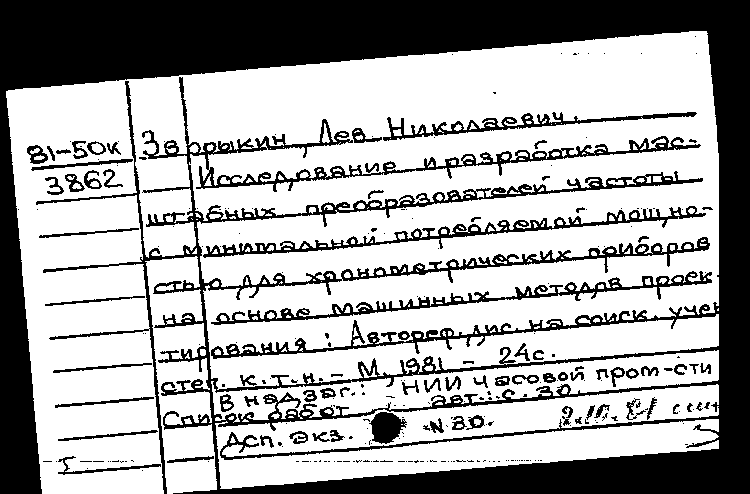 81-50к Зворыкин, Лев Николаевич.
3862 Исследование и разработка мас-
штабных преобразователей частоты
с минимальной потребляемой мощно-
стью для хронометрических приборов
на основе машинных методов проек-
тирования : Автореф. дис. на соиск. учен
степ. к.т.н. - М, 1981 - 24с.
В надзаг.: НИИ часовой пром-сти
Список работ авт.: с. 20.
Дсп. Экз. N 30.
2.10.81